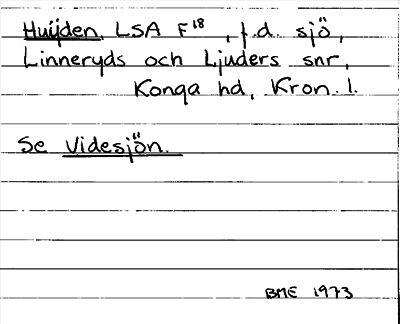 Huijden, LSA F¹⁸, f.d. sjö,
Linneryds och Ljuders snr,
Konga hd, Kron. l.
Se Videsjön.
BME 1973